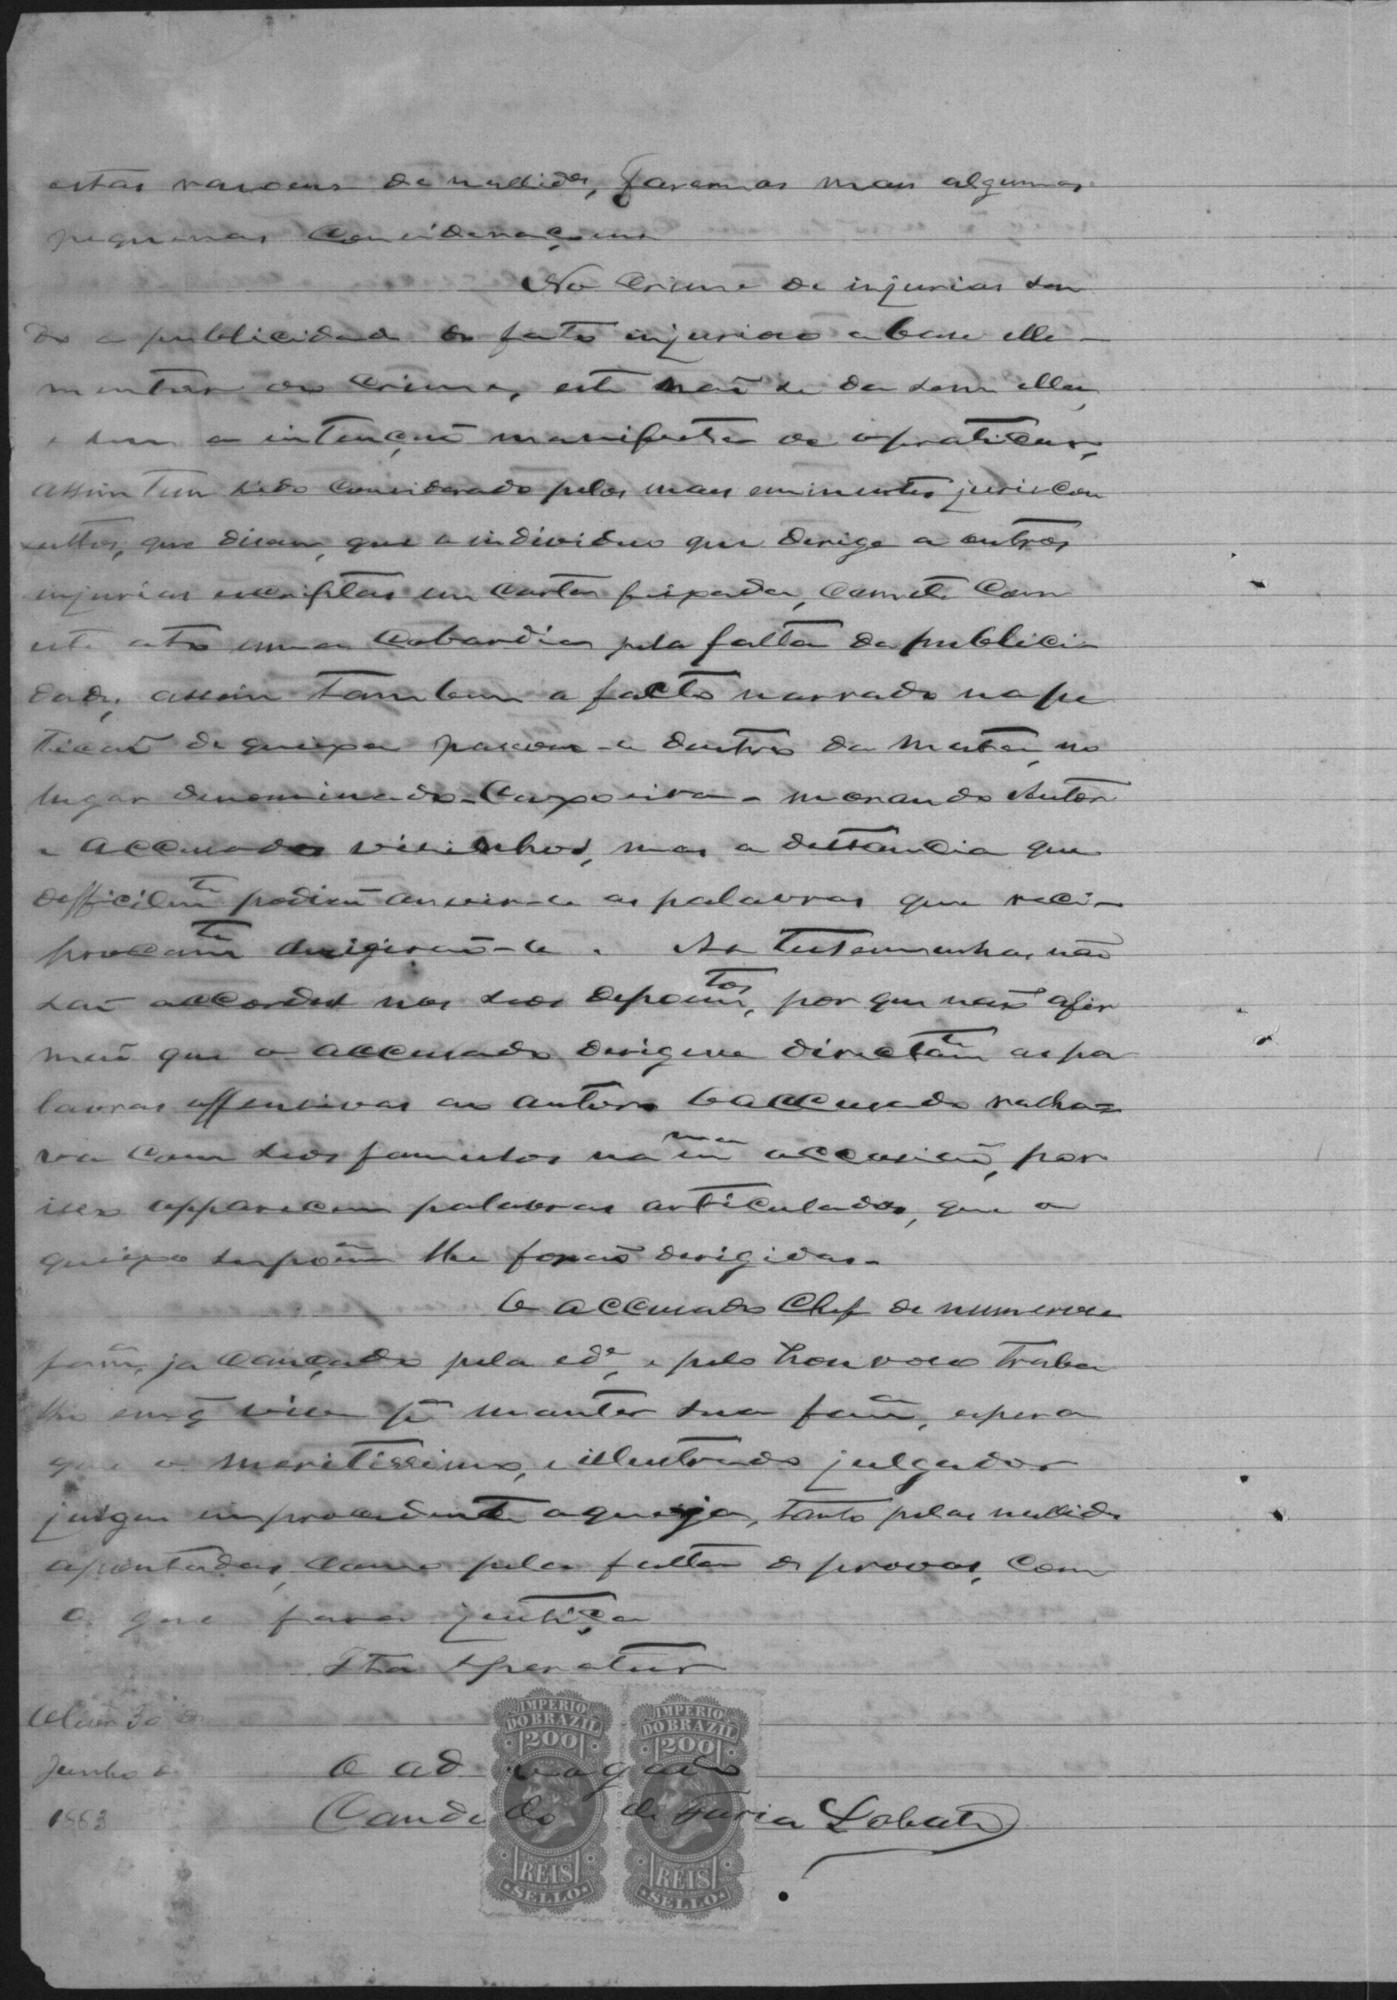 estas rasoens de nullides, faremos mais algumas
pequenas considerações
No crime de injurias sen
do a publicidade do facto injurioso a base elle-
mentar do crime, este não se da sem ella,
e sem a intenção manifesta de o praticar,
assim tem sido considerado pelos mais eminentes juriscon
sultos, que disem, que o individuo que derige a outros
injurias escriptas em carta fixada, comete com
este acto uma cobardia pela falta da publici-
dade, assim tambem o facto narrado na pe
tição de queixa passou-se dentro da matta, no
lugar denominado-Capoeira- morando Autor
e accusado visinhos, mas a distancia que
defficilmte podião ouvir-se as palavras que reci-
procamte dirigirão-se. As testemunhas não
são accordes nos seos depoimtos, por que não afir
mão que o accusado derigisse directamte as pa
lavras offensivas ao autor. O accusado ralha-
va com seos famulos na mma occasião, por
isso apparecem palavras articuladas, que o
queixo supõem lhe forão derigidas-
O accusado chefe de numerosa
famª, ja cançado pela ede, e pelo honroso traba
lho em q̃ vive pª manter sua famª, espera
que o meritissimo, e illustrado julgador
julgue improcedente a queixa, tanto pelas nullides
apontadas, como pela falta de provas, com
o que fara justiça
Ita Speratur
30 de
Junho de
1883
O advogado
Candido de Faria Lobato
IMPERIO DO BRAZIL
200
REIS
SELLO
IMPERIO DO BRAZIL
200
REIS
SELLO